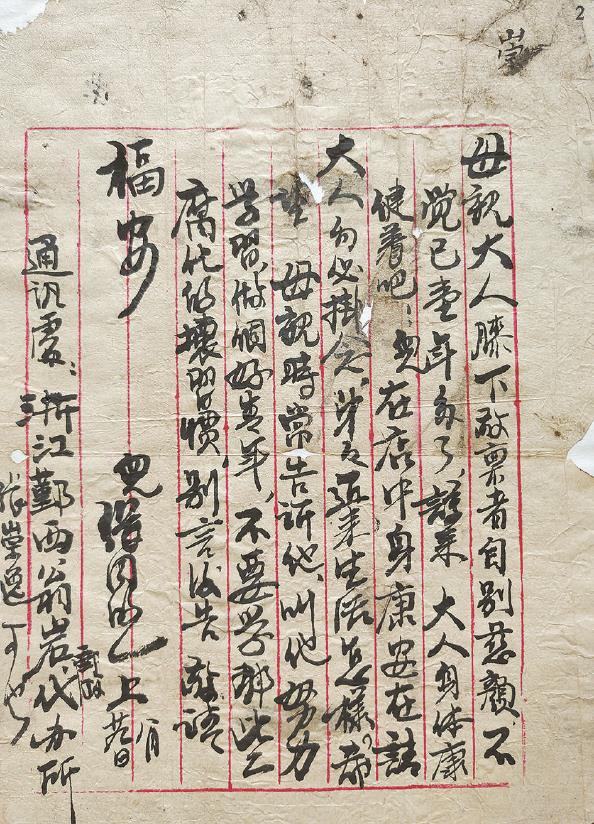 2
崇
母親大人膝下敬稟者自别慈顏、不
觉已壹年多了、諒来 大人身体康
健着吧！兒在店中身康安在請
大人勿必掛念、弟及近来生活怎樣？希
望 母親時常告訴他、叫他努力
学習、做個好青年、不要学那些
腐化的壞習慣、别言後告 敬請
福安
兒 上
八月
通訊處：浙江鄞西翁岩代办所
張崇逸